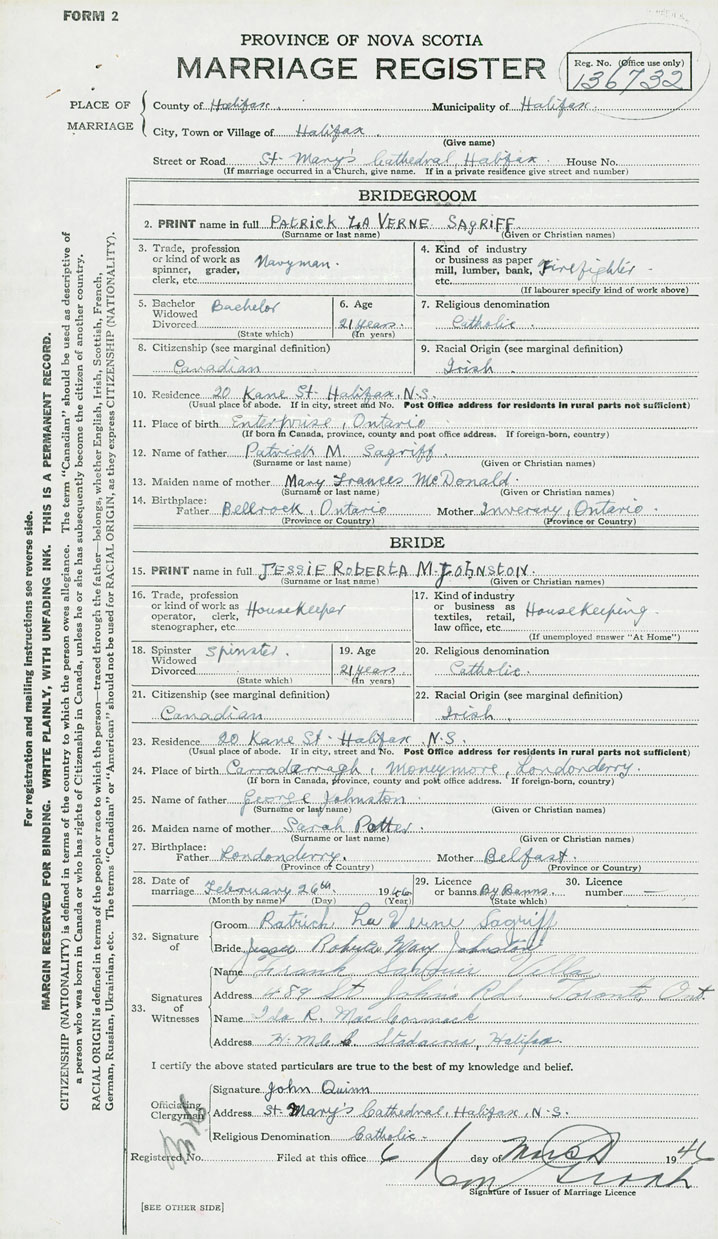 FORM 2
PROVINCE OF NOVA SCOTIA
MARRIAGE REGISTER
Reg. No. (Office use only)
136732
PLACE OF MARRIAGE
County of Halifax. Municipality of Halifax.
City, Town or Village of Halifax
(Give name)
Street or Road St. Mary's Cathedral, Halifax. House No.
(If marriage occurred in a Church, give name. If in a private residence give street and number)
BRIDEGROOM
2. PRINT name in full PATRICK LA VERNE SAGRIFF.
(Surname or last name) (Given or Christian names)
3. Trade, profession or kind of work as spinner, grader, clerk, etc. Navyman.
4. Kind of industry or business as paper mill, lumber, bank, etc. Firefighter.
(If labourer specify kind of work above)
5. Bachelor Widowed Divorced Bachelor
(State which)
6. Age 21 years.
(In years)
7. Religious denomination
Catholic.
8. Citizenship (see marginal definition)
Canadian
9. Racial Origin (see marginal definition)
Irish.
10. Residence 20 Kane St. Halifax, N.S.
(Usual place of abode. If in city, street and No. Post Office address for residents in rural parts not sufficient)
11. Place of birth Enterprise, Ontario
(If born in Canada, province, county and post office address. If foreign-born, country)
12. Name of father Patrick M. Sagriff.
(Surname or last name) (Given or Christian names)
13. Maiden name of mother Mary Frances McDonald.
(Surname or last name) (Given or Christian names)
14. Birthplace: Father Bellrock, Ontario Mother Inverary, Ontario.
(Province or Country) (Province or Country)
BRIDE
15. PRINT name in full JESSIE ROBERTA M. JOHNSTON.
(Surname or last name) (Given or Christian names)
16. Trade, profession or kind of work as operator, clerk, stenographer, etc. Housekeeper
17. Kind of industry or business as textiles, retail, law office, etc. Housekeeping.
(If unemployed answer "At Home")
18. Spinster Widowed Divorced Spinster.
(State which)
19. Age 21 years.
(In years)
20. Religious denomination
Catholic.
21. Citizenship (see marginal definition)
Canadian
22. Racial Origin (see marginal definition)
Irish.
23. Residence 20 Kane St. Halifax, N.S.
(Usual place of abode. If in city, street and No. Post Office address for residents in rural parts not sufficient)
24. Place of birth Carradarragh, Moneymore, Londonderry.
(If born in Canada, province, county and post office address. If foreign-born, country)
25. Name of father George Johnston
(Surname or last name) (Given or Christian names)
26. Maiden name of mother Sarah Potter.
(Surname or last name) (Given or Christian names)
27. Birthplace: Father Londonderry. Mother Belfast.
(Province or Country) (Province or Country)
28. Date of marriage February 26th. 1946
(Month by name) (Day) (Year)
29. Licence or banns By Banns.
(State which)
30. Licence number —
32. Signature of
Groom Patrick La Verne Sagriff
Bride Jessie Roberta May Johnston
33. Signatures of Witnesses
Name Frank Villa
Address 489 St. John's Rd. Toronto, Ont.
Name Ida R. MacCormack
Address Stadacona, Halifax.
I certify the above stated particulars are true to the best of my knowledge and belief.
Officiating Clergyman
Signature John Quinn
Address St. Mary's Cathedral, Halifax, N.S.
Religious Denomination Catholic.
Registered No. Filed at this office 6 day of March 1946
Signature of Issuer of Marriage Licence
[SEE OTHER SIDE]
For registration and mailing instructions see reverse side.
MARGIN RESERVED FOR BINDING. WRITE PLAINLY, WITH UNFADING INK. THIS IS A PERMANENT RECORD.
CITIZENSHIP (NATIONALITY) is defined in terms of the country to which the person owes allegiance. The term "Canadian" should be used as descriptive of
a person who was born in Canada or who has rights of Citizenship in Canada, unless he or she has subsequently become the citizen of another country.
RACIAL ORIGIN is defined in terms of the people or race to which the person—traced through the father—belongs, whether English, Irish, Scottish, French,
German, Russian, Ukrainian, etc. The terms "Canadian" or "American" should not be used for RACIAL ORIGIN, as they express CITIZENSHIP (NATIONALITY).